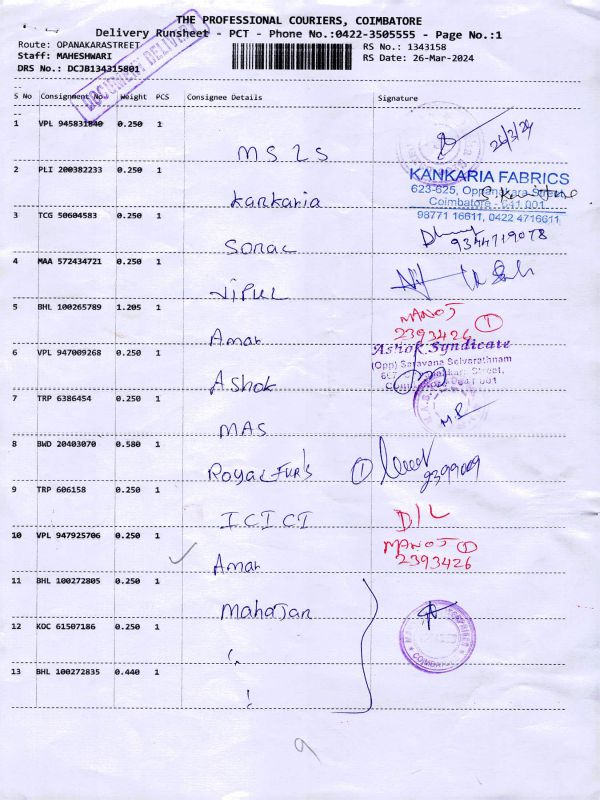 THE PROFESSIONAL COURIERS, COIMBATORE
Delivery Runsheet - PCT - Phone No.:0422-3505555 - Page No.:1
Route: OPANAKARASTREET
RS No.: 1343158
Staff: MAHESHWARI
RS Date: 26-Mar-2024
DRS No.: DCJB134315801
DOCUMENT DELIVERY
S No Consignment No. Weight PCS Consignee Details Signature
1 VPL 945831840 0.250 1
26/3/24
MS 2S
2 PLI 200382233 0.250 1
KANKARIA FABRICS
623-625, Oppanakara Street,
Kankaria
Coimbatore - 641 001
98771 16611, 0422 4716611
3 TCG 50604583 0.250 1
9344719078
Sonac
4 MAA 572434721 0.250 1
VIPUL
5 BHL 100265789 1.205 1
MANOJ
2393426 1
Amar
6 VPL 947009268 0.250 1
Ashok Syndicate
(Opp) Saravana Selvarathnam
Ashok
7 TRP 6386454 0.250 1
MAS
8 BWD 20403070 0.580 1
Royal Fur's 1
9 TRP 606158 0.250 1
ICICI
D/L
10 VPL 947925706 0.250 1
MANOJ 1
2393426
Amar
11 BHL 100272805 0.250 1
Mahajan
12 KOC 61507186 0.250 1
13 BHL 100272835 0.440 1
9